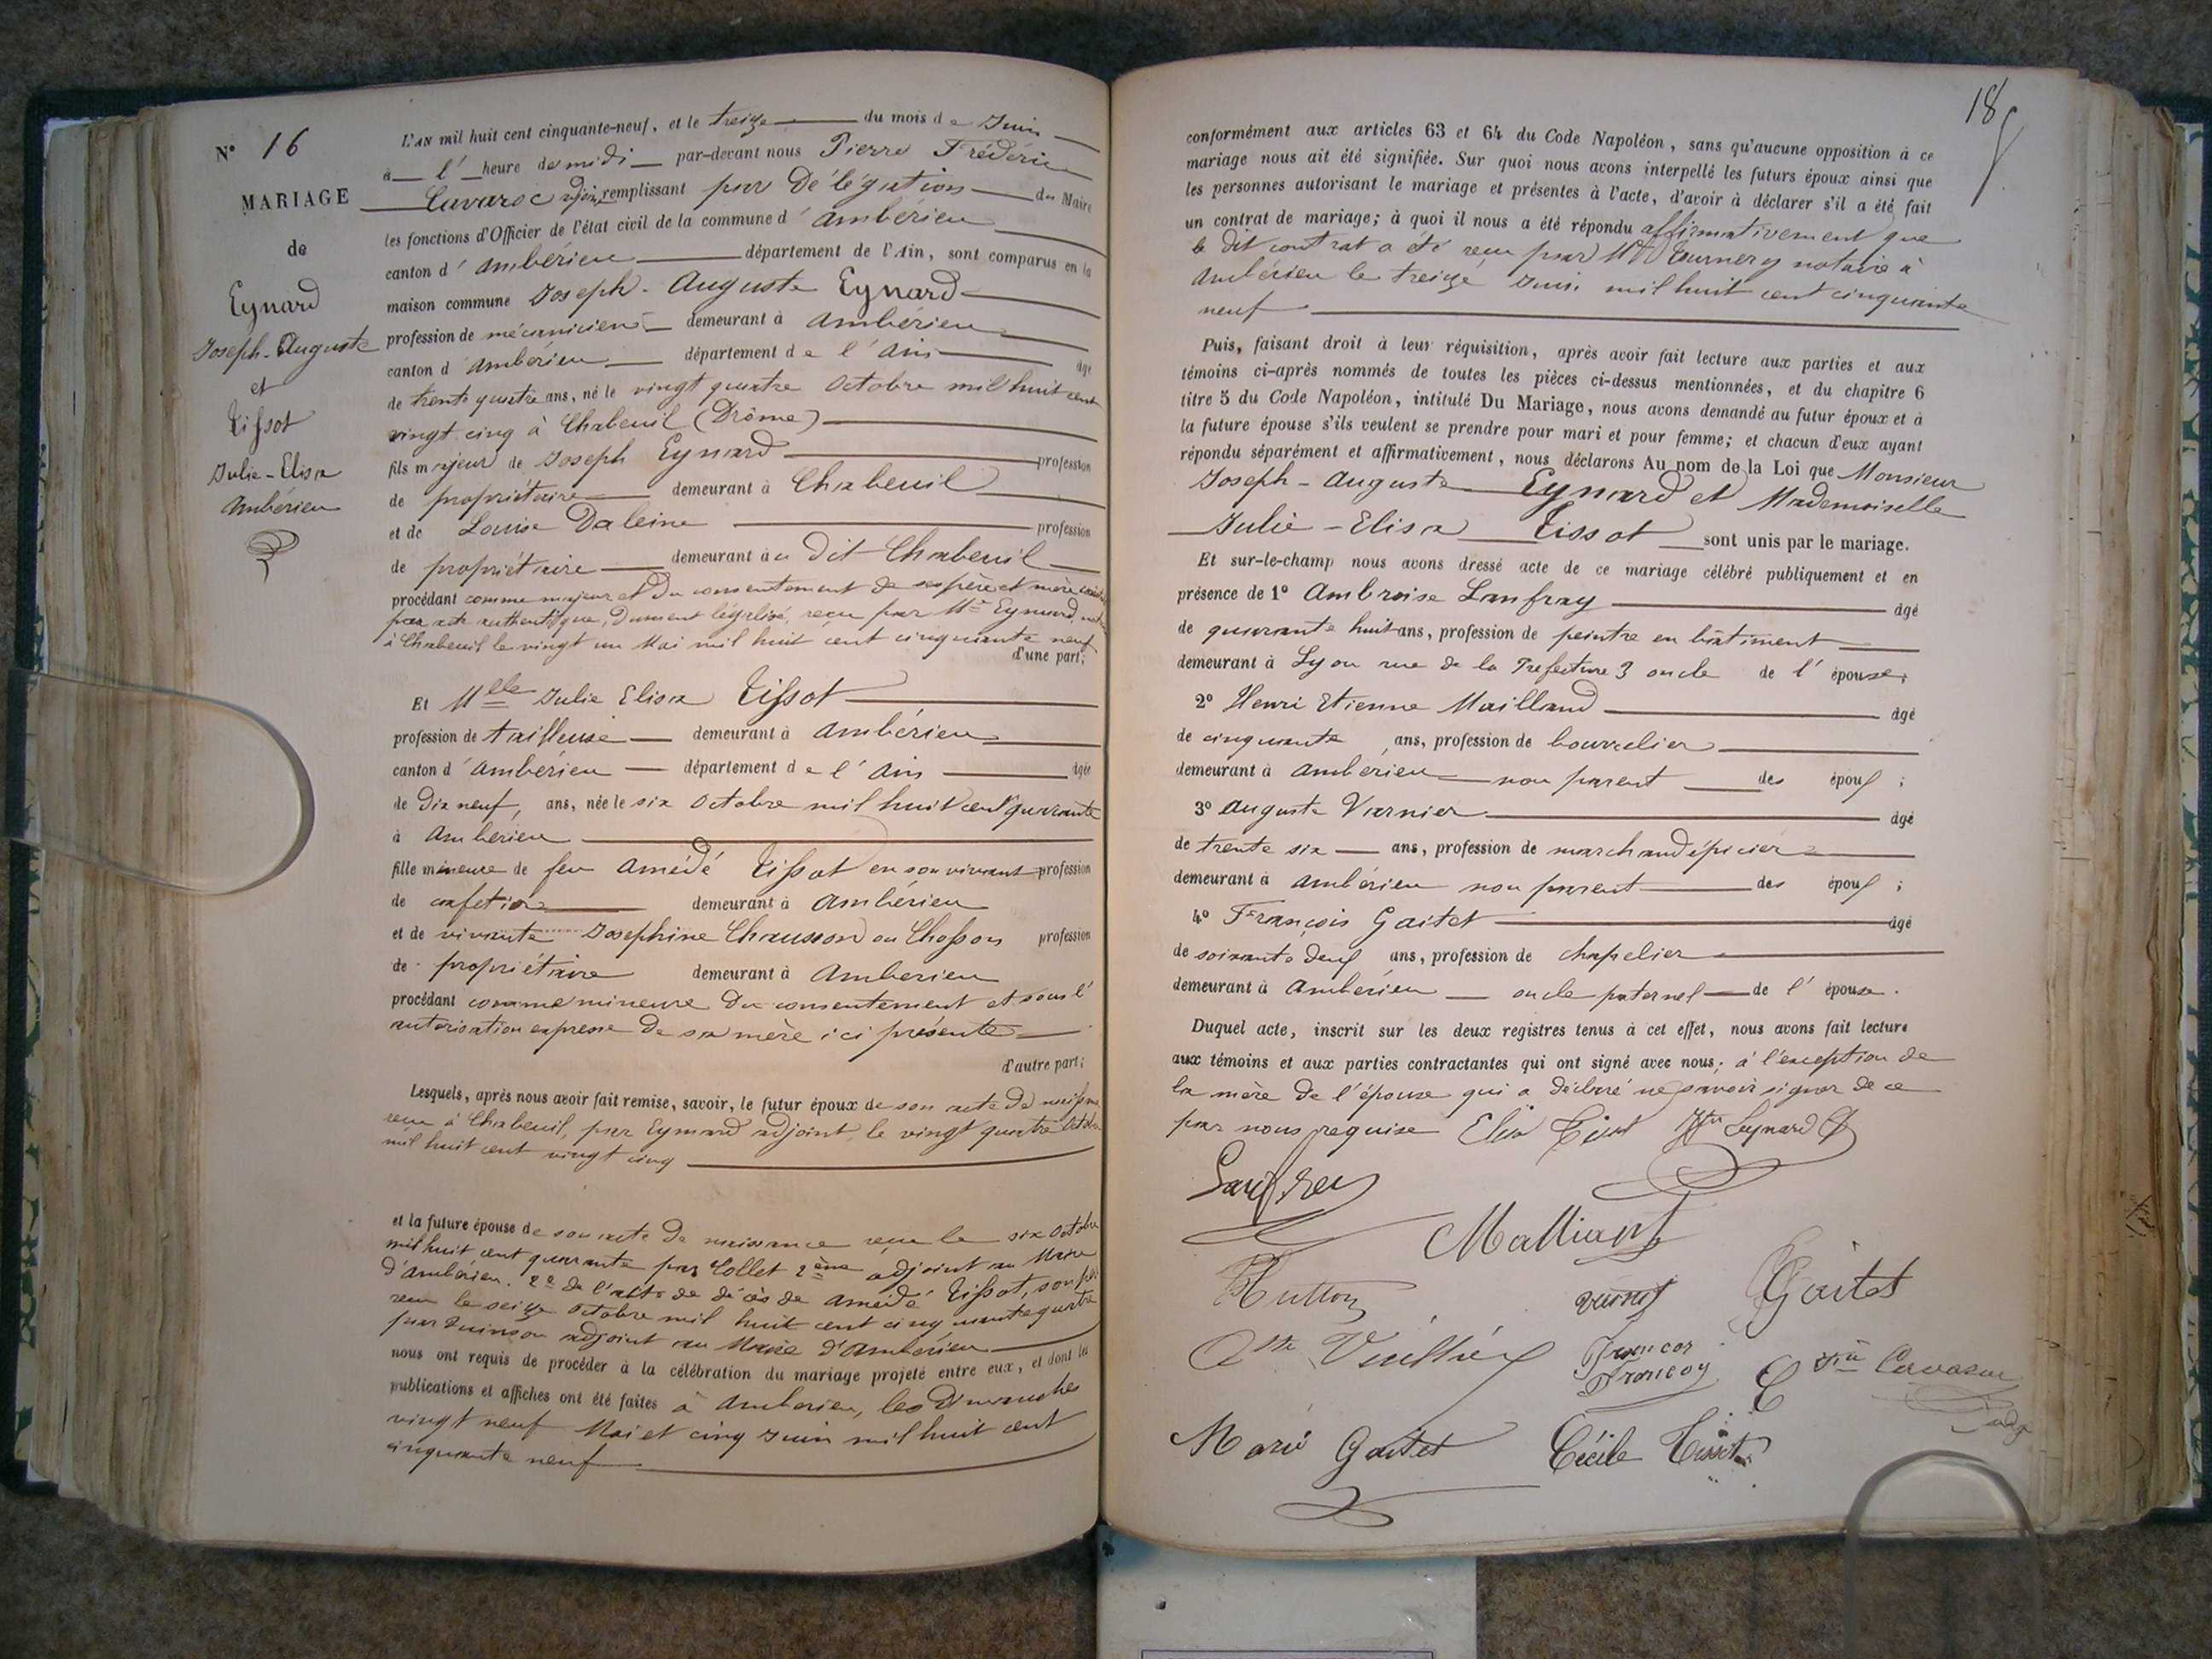 N° 16
MARIAGE
de
Eynard
Joseph-Auguste
et
Tissot
Julie-Elisa
Ambérieu
L'AN mil huit cent cinquante-neuf, et le treize du mois de Juin
à l' heure de midi par-devant nous Pierre Frédéric
Cavaroc adjoint remplissant par délégation du Maire
les fonctions d'Officier de l'état civil de la commune d'Ambérieu
canton d'Ambérieu département de l'Ain, sont comparus en la
maison commune Joseph-Auguste Eynard
profession de mécanicien demeurant à Ambérieu
canton d'Ambérieu département de l'Ain âgé
de trente quatre ans, né le vingt quatre Octobre mil huit cent
vingt cinq à Chabeuil (Drôme)
fils majeur de Joseph Eynard profession
de propriétaire demeurant à Chabeuil
et de Louise Daleine profession
de propriétaire demeurant au dit Chabeuil
procédant comme majeur et du consentement de ses père et mère
par acte authentique, dument légalisé, reçu par Me Eymard,
à Chabeuil le vingt un Mai mil huit cent cinquante neuf
d'une part;
Et Melle Julie Elisa Tissot
profession de tailleuse demeurant à Ambérieu
canton d'Ambérieu département de l'Ain âgée
de dix neuf, ans, née le six Octobre mil huit cent quarante
à Ambérieu
fille mineure de feu Amédé Tissot en son vivant profession
de demeurant à Ambérieu
et de vivante Josephine Chausson ou Chosson profession
de propriétaire demeurant à Amberieu
procédant comme mineure du consentement et sous l'
autorisation expresse de sa mère ici présente
d'autre part;
Lesquels, après nous avoir fait remise, savoir, le futur époux de son acte de
reçu à Chabeuil, par Eymard adjoint, le vingt quatre Octobre
mil huit cent vingt cinq
et la future épouse de son acte de naissance reçu le six Octobre
mil huit cent quarante par Collet 2ème adjoint au Maire
d'Ambérieu. 2° de l'acte de décès de Amédé Tissot, son père
reçu le seize Octobre mil huit cent cinquante quatre
par adjoint au Maire d'Ambérieu
nous ont requis de procéder à la célébration du mariage projeté entre eux, et dont les
publications et affiches ont été faites à Ambérieu, les Dimanches
vingt neuf Mai et cinq Juin mil huit cent
cinquante neuf
18
conformément aux articles 63 et 64 du Code Napoléon, sans qu'aucune opposition à ce
mariage nous ait été signifiée. Sur quoi nous avons interpellé les futurs époux ainsi que
les personnes autorisant le mariage et présentes à l'acte, d'avoir à déclarer s'il a été fait
un contrat de mariage; à quoi il nous a été répondu affirmativement que
le dit contrat a été reçu par Me Tournery notaire à
Ambérieu le treize Juin mil huit cent cinquante
neuf
Puis, faisant droit à leur réquisition, après avoir fait lecture aux parties et aux
témoins ci-après nommés de toutes les pièces ci-dessus mentionnées, et du chapitre 6
titre 5 du Code Napoléon, intitulé Du Mariage, nous avons demandé au futur époux et à
la future épouse s'ils veulent se prendre pour mari et pour femme; et chacun d'eux ayant
répondu séparément et affirmativement, nous déclarons Au nom de la Loi que Monsieur
Joseph-Auguste Eynard et Mademoiselle
Julie-Elisa Tissot sont unis par le mariage.
Et sur-le-champ nous avons dressé acte de ce mariage célébré publiquement et en
présence de 1° Ambroise Lanfray âgé
de quarante huit ans, profession de peintre en bâtiment
demeurant à Lyon rue de la Prefecture 3 oncle de l'épouse;
2° Henri Etienne Mailland âgé
de cinquante ans, profession de bourrelier
demeurant à Amberieu non parent des époux;
3° Auguste Varnier âgé
de trente six ans, profession de marchand épicier
demeurant à Ambérieu non parent des époux;
4° François Gaitet âgé
de soixante deux ans, profession de chapelier
demeurant à Ambérieu oncle paternel de l'épouse.
Duquel acte, inscrit sur les deux registres tenus à cet effet, nous avons fait lecture
aux témoins et aux parties contractantes qui ont signé avec nous; à l'exception de
la mère de l'épouse qui a déclaré ne savoir signer de ce
par nous requise Elisa Tissot Eynard
Lanfrey
Malliand
Gaitet
Cavaroc
Marie Gaitet Cécile Tissot